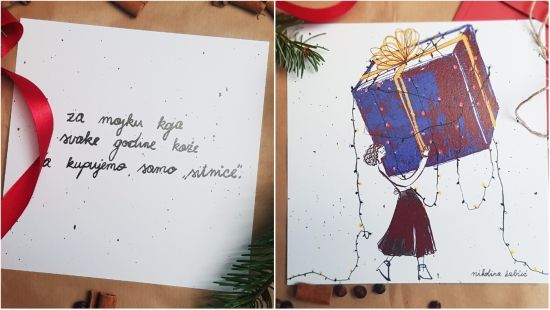 za mojku koja
svake godine kaže
da kupujemo samo „sitnice“.
nikolina šabić